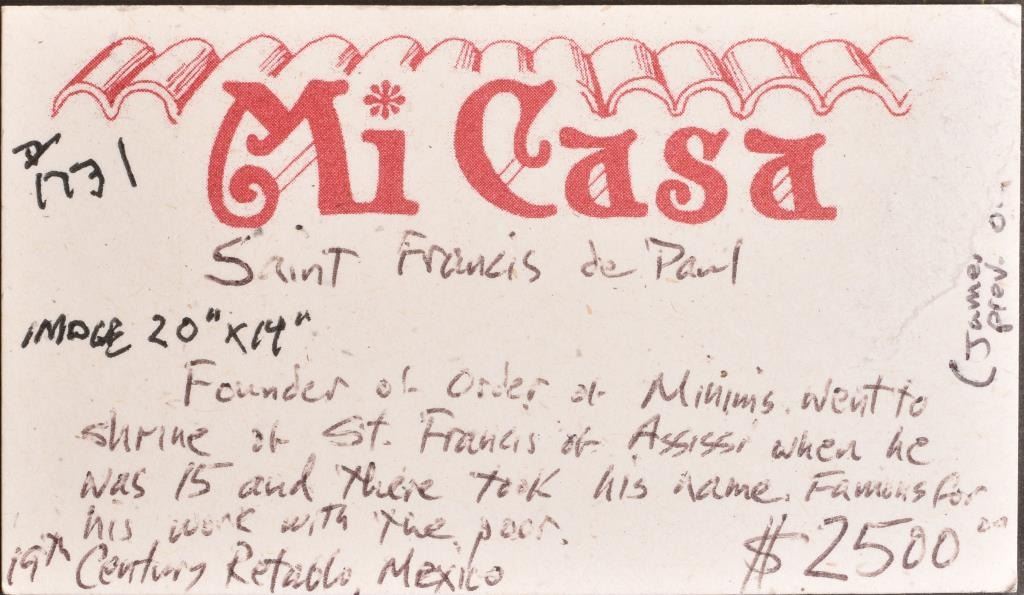 Mi Casa
1731
Saint Francis de Paul
IMAGE 20" x 14"
Founder of Order of Minims. Went to
shrine of St. Francis of Assissi when he
was 15 and there took his name. Famous for
his work with the poor.
19th Century Retablo, Mexico
$2500 00
(James
prev. o